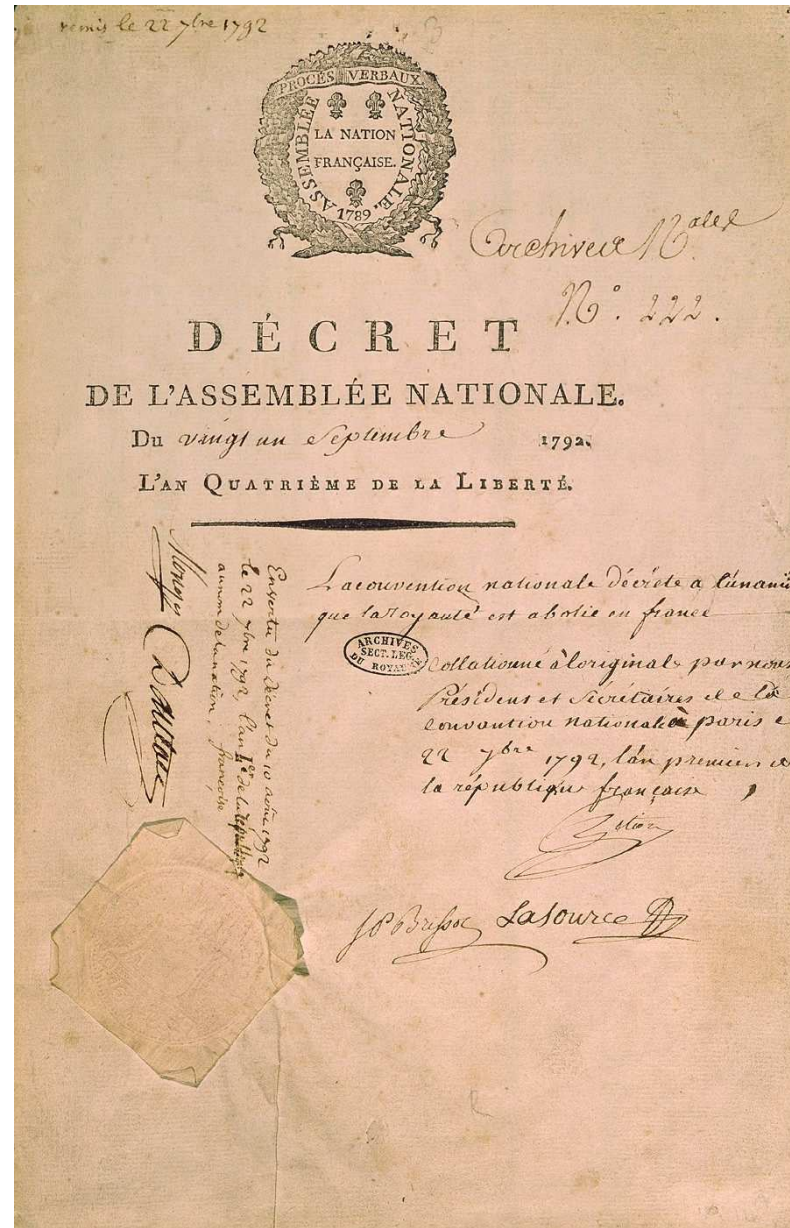 remis le 22 7bre 1792
PROCÈS VERBAUX.
ASSEMBLÉE NATIONALE.
LA NATION
FRANÇAISE.
1789
Archives Nales
No. 222.
DÉCRET
DE L'ASSEMBLÉE NATIONALE.
Du vingt un Septembre 1792.
L'AN QUATRIÈME DE LA LIBERTÉ.
La convention nationale décrète a l'unanim
que la royauté est abolie en france
ARCHIVES
SECT. LEG.
DU ROYAUME
Collationné à l'original par nous
Présidens et Sécrétaires de la
convention nationale à paris
22 7bre 1792, l'an premier de
la république françaisse
Petion
J P Brissot Lasource
En vertu du Décret du 10 août 1792
le 22 7bre 1792, l'an 1er de la république
au nom de la nation, françoise
Monge
Danton